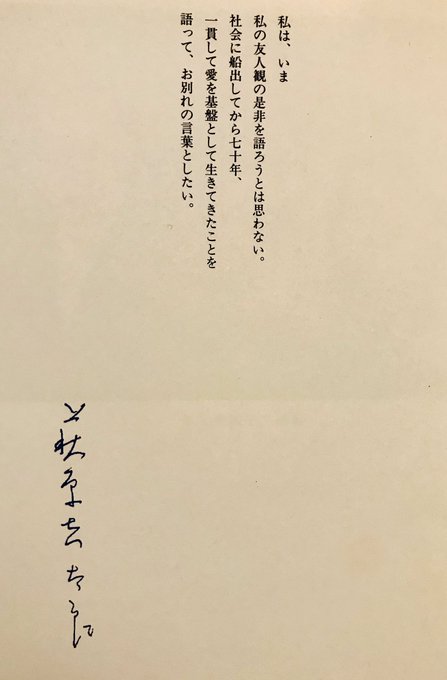 私は、いま
私の友人観の是非を語ろうとは思わない。
社会に船出してから七十年、
一貫して愛を基盤として生きてきたことを
語って、お別れの言葉としたい。
萩原吉太郎